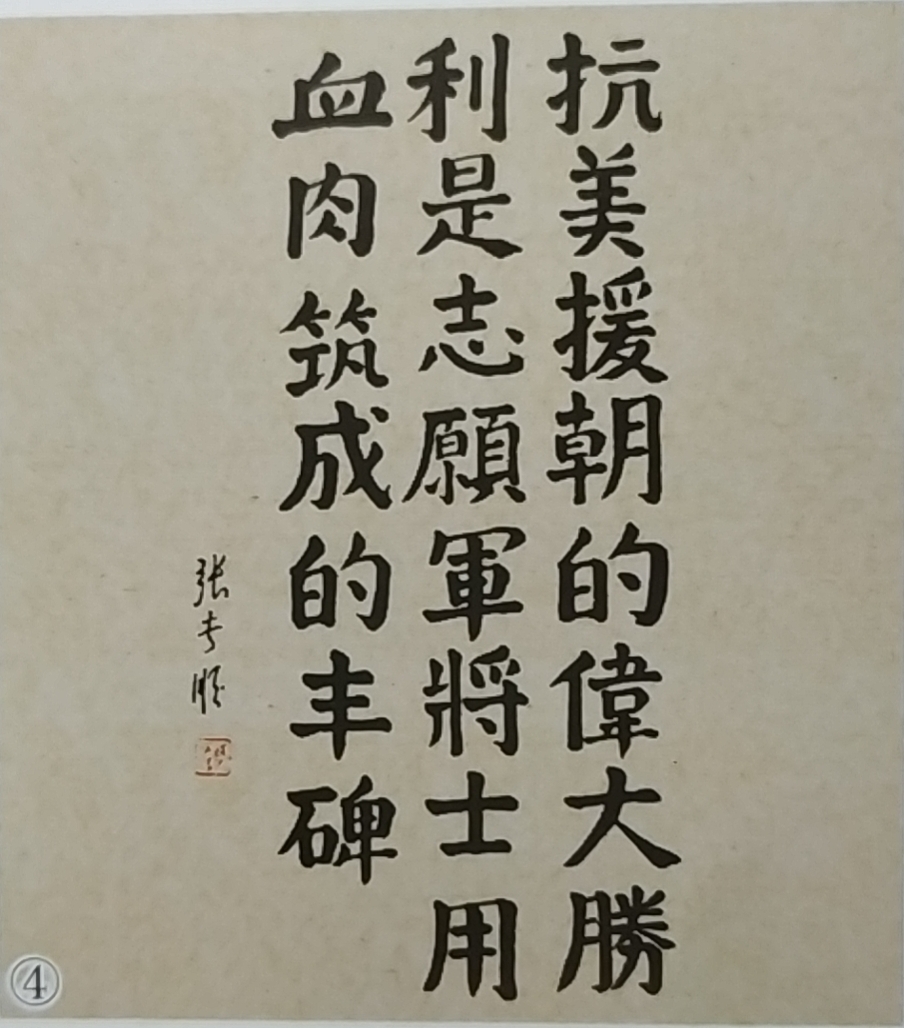 抗美援朝的偉大勝
利是志願軍將士用
血肉筑成的丰碑
张专顺
④